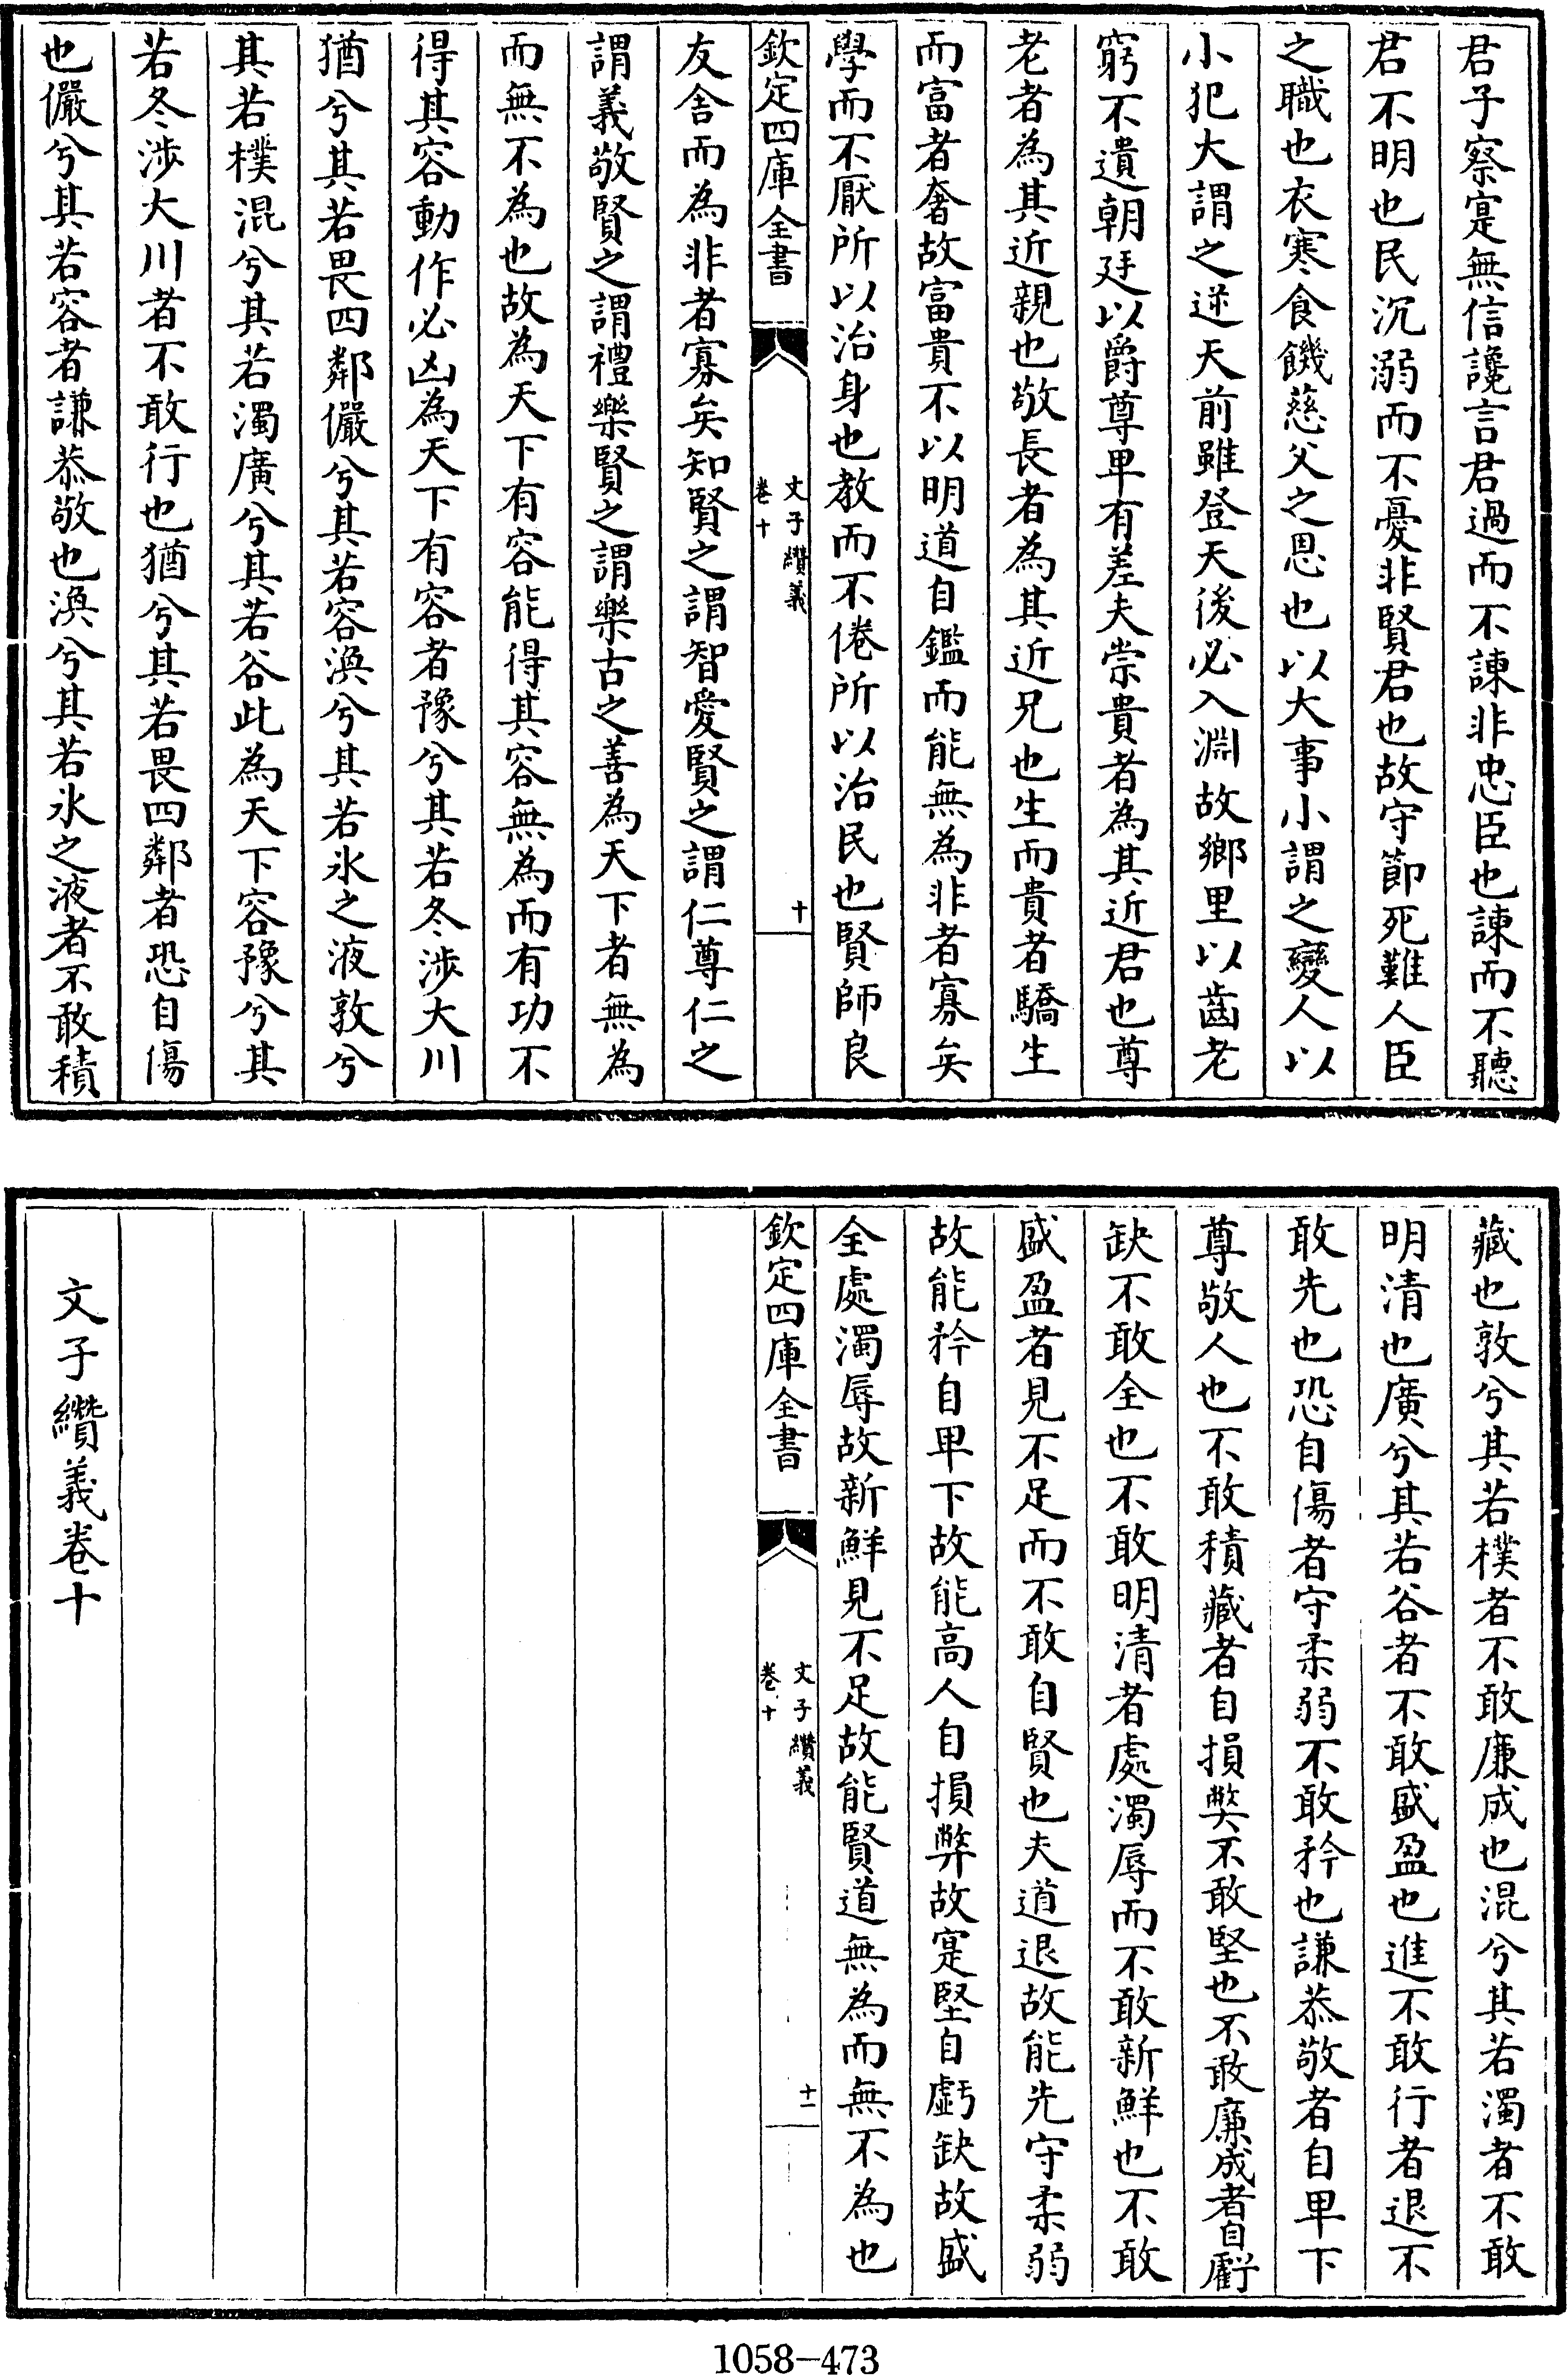 君子察寔無信讒言君過而不諫非忠臣也諫而不聽
君不明也民沉溺而不憂非賢君也故守節死難人臣
之職也衣寒食饑慈父之恩也以大事小謂之變人以
小犯大謂之逆天前雖登天後必入淵故鄉里以齒老
窮不遺朝廷以爵尊卑有差夫崇貴者為其近君也尊
老者為其近親也敬長者為其近兄也生而貴者驕生
而富者奢故富貴不以明道自鑑而能無為非者寡矣
學而不厭所以治身也教而不倦所以治民也賢師良
欽定四庫全書
文子纘義
卷十
十
友舍而為非者寡矣知賢之謂智愛賢之謂仁尊仁之
謂義敬賢之謂禮樂賢之謂樂古之善為天下者無為
而無不為也故為天下有容能得其容無為而有功不
得其容動作必凶為天下有容者豫兮其若冬涉大川
猶兮其若畏四鄰儼兮其若容渙兮其若氷之液敦兮
其若樸混兮其若濁廣兮其若谷此為天下容豫兮其
若冬涉大川者不敢行也猶兮其若畏四鄰者恐自傷
也儼兮其若容者謙恭敬也渙兮其若氷之液者不敢積
藏也敦兮其若樸者不敢廉成也混兮其若濁者不敢
明清也廣兮其若谷者不敢盛盈也進不敢行者退不
敢先也恐自傷者守柔弱不敢矜也謙恭敬者自卑下
尊敬人也不敢積藏者自損獘不敢堅也不敢廉成者自虧
缺不敢全也不敢明清者處濁辱而不敢新鮮也不敢
盛盈者見不足而不敢自賢也夫道退故能先守柔弱
故能矜自卑下故能高人自損弊故寔堅自虧缺故盛
全處濁辱故新鮮見不足故能賢道無為而無不為也
欽定四庫全書
文子纘義
卷十
十一
文子纘義卷十
1058-473